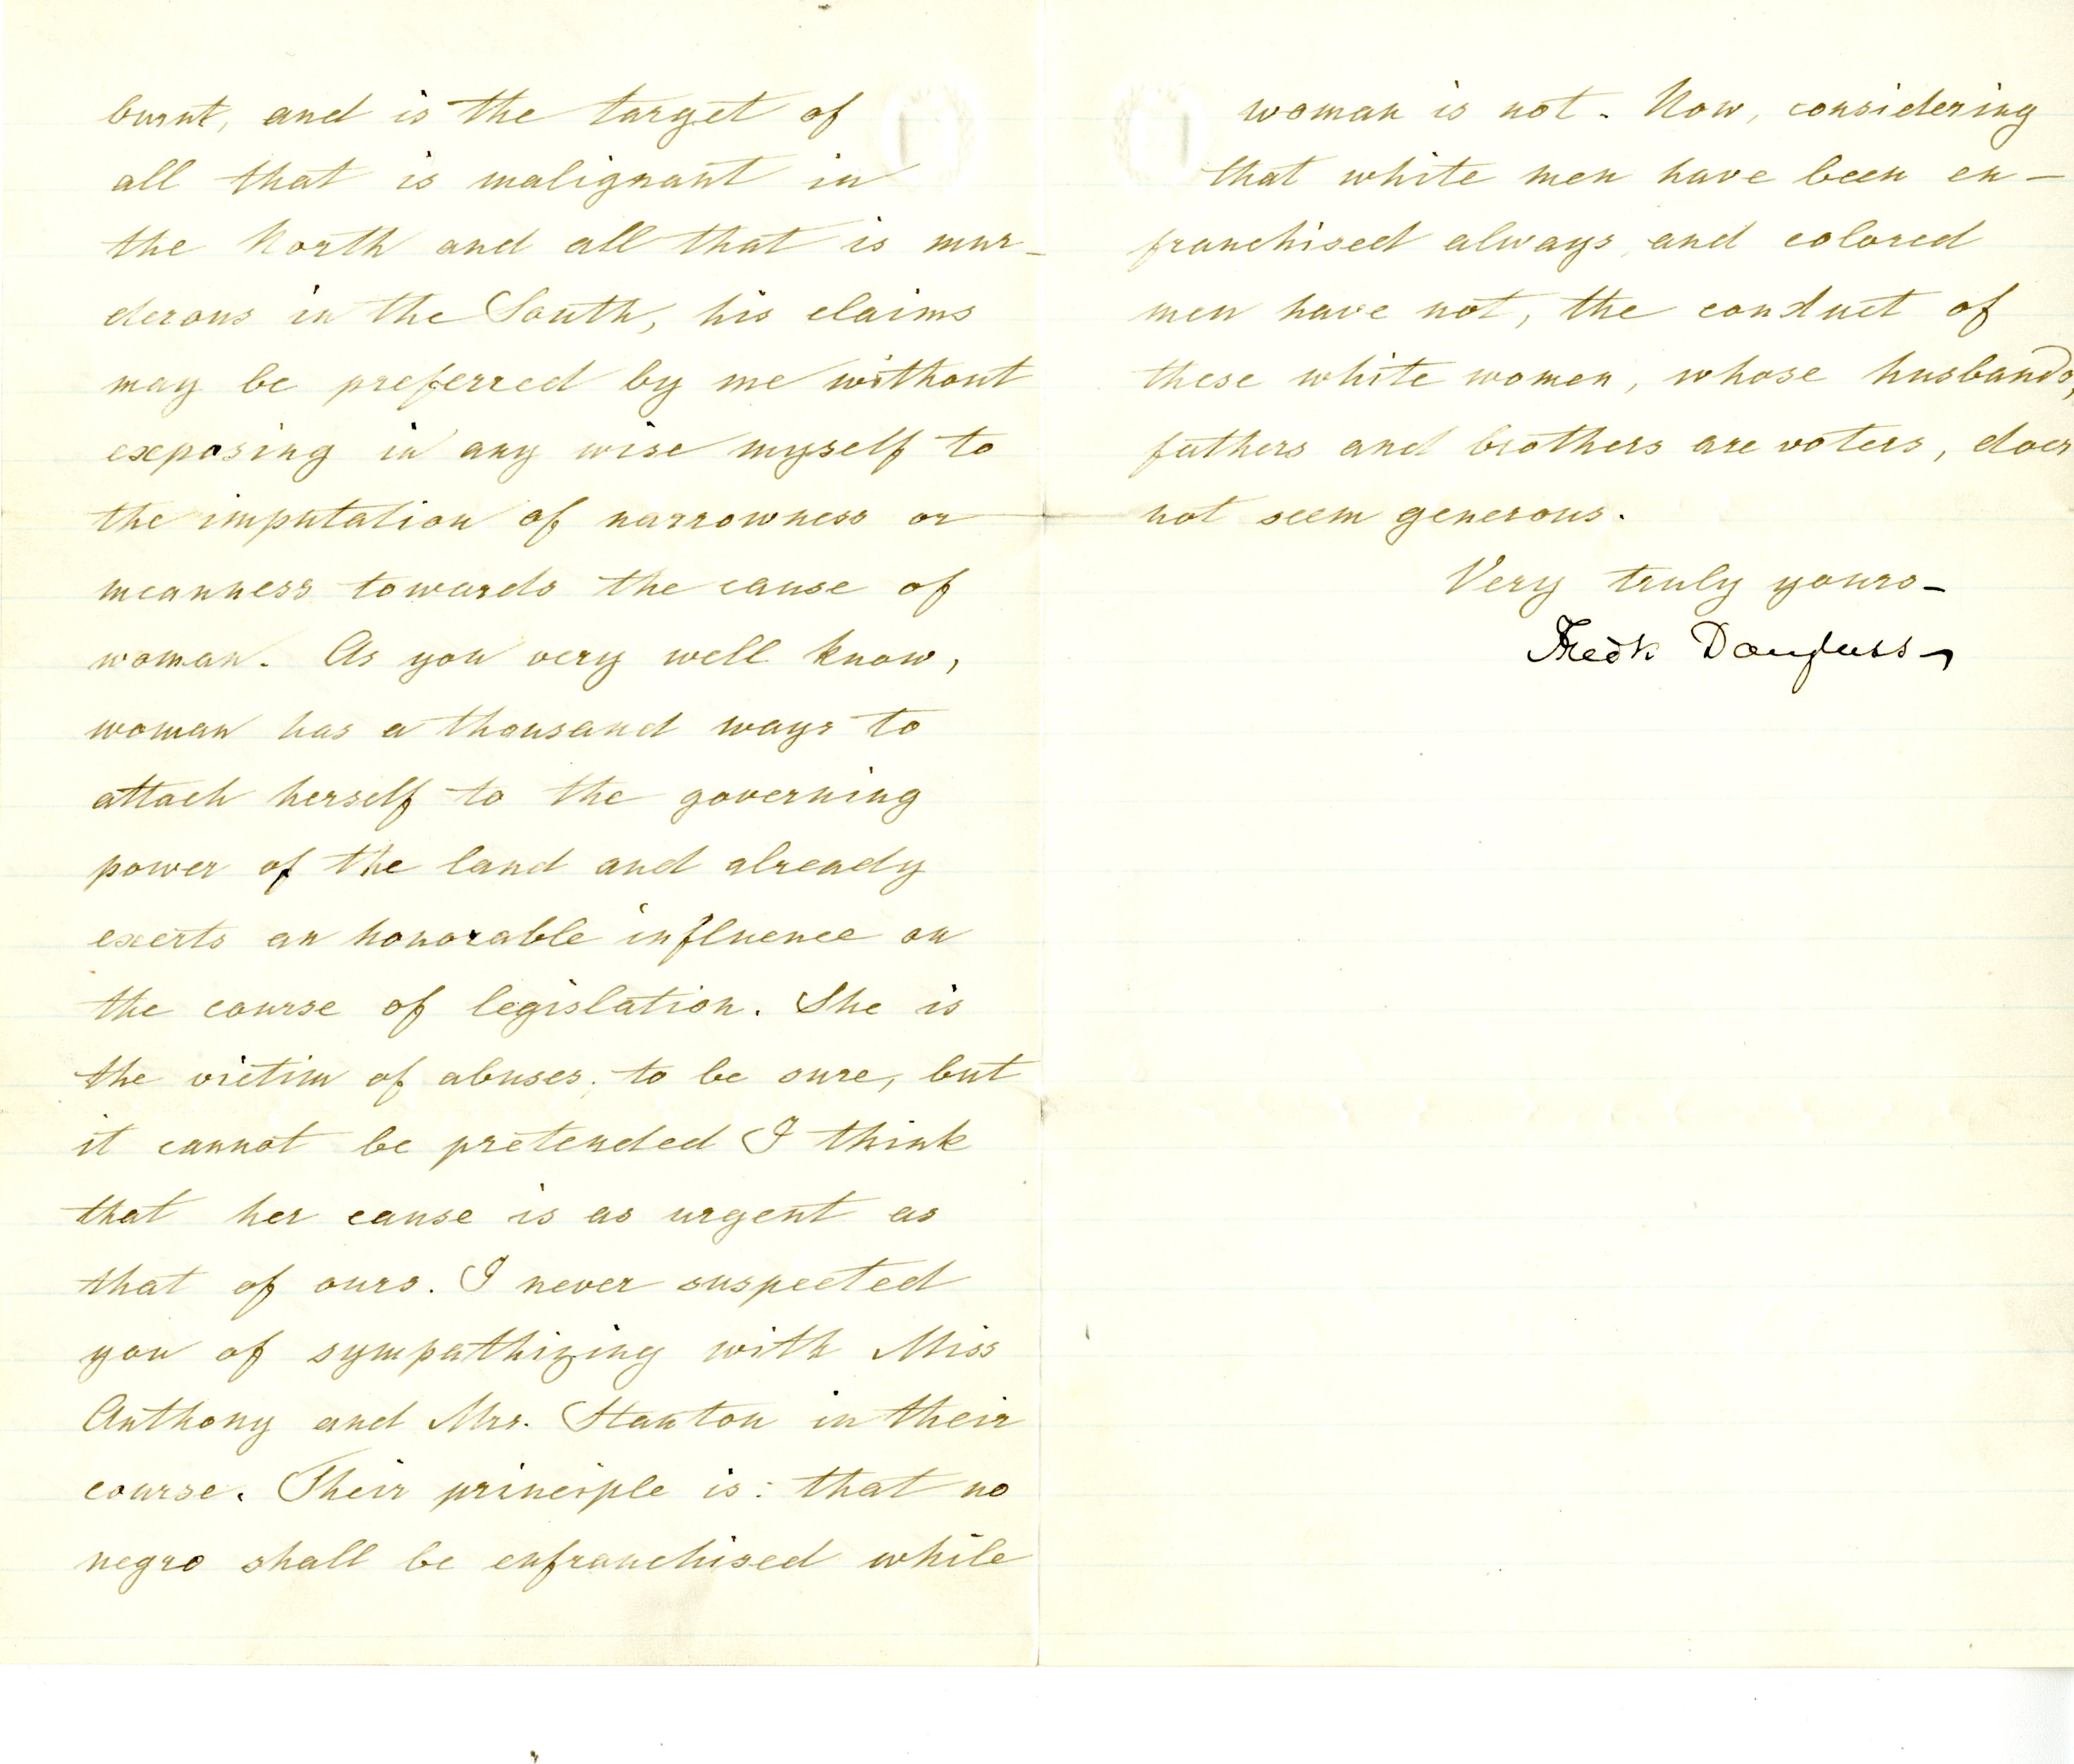 burnt, and is the target of
all that is malignant in
the North and all that is mur-
derous in the South, his claims
may be preferred by me without
exposing in any wise myself to
the imputation of narrowness or
meanness towards the cause of
woman. As you very well know,
woman has a thousand ways to
attach herself to the governing
power of the land and already
exerts an honorable influence on
the course of legislation. She is
the victim of abuses, to be sure, but
it cannot be pretended I think
that her cause is as urgent as
that of ours. I never suspected
you of sympathizing with Miss
Anthony and Mrs. Stanton in their
course. Their principle is: that no
negro shall be enfranchised while
woman is not. Now, considering
that white men have been en-
franchised always, and colored
men have not, the conduct of
these white women, whose husbands,
fathers and brothers are voters, does
not seem generous.
Very truly yours-
Fredk Douglass